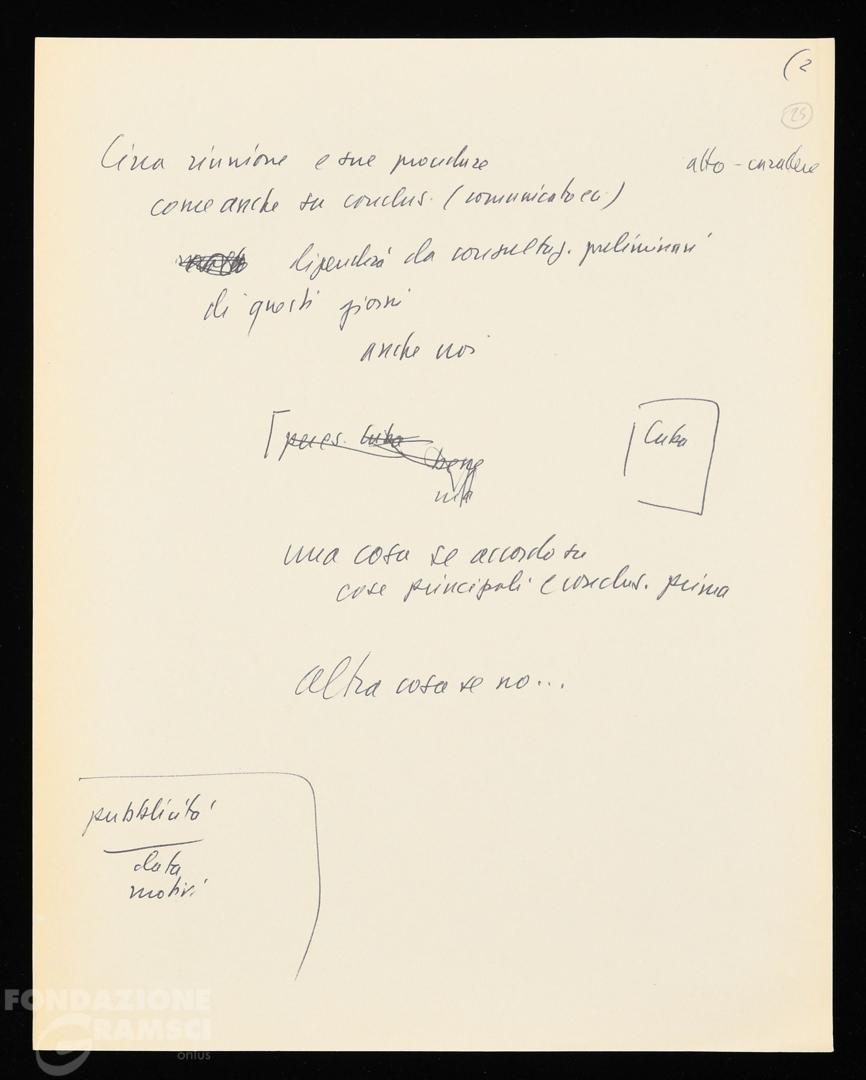 (2
25
Circa riunione e sue procedure
alto - carattere
come anche su conclus. (comunicato ecc)
dipenderà da consultaz. preliminari
di questi giorni
anche noi
[ pres. Cuba
bene
ma
Cuba
una cosa se accordo su
cose principali e conclus. prima
Altra cosa se no...
pubblicità
data
motivi
FONDAZIONE
GRAMSCI
onlus